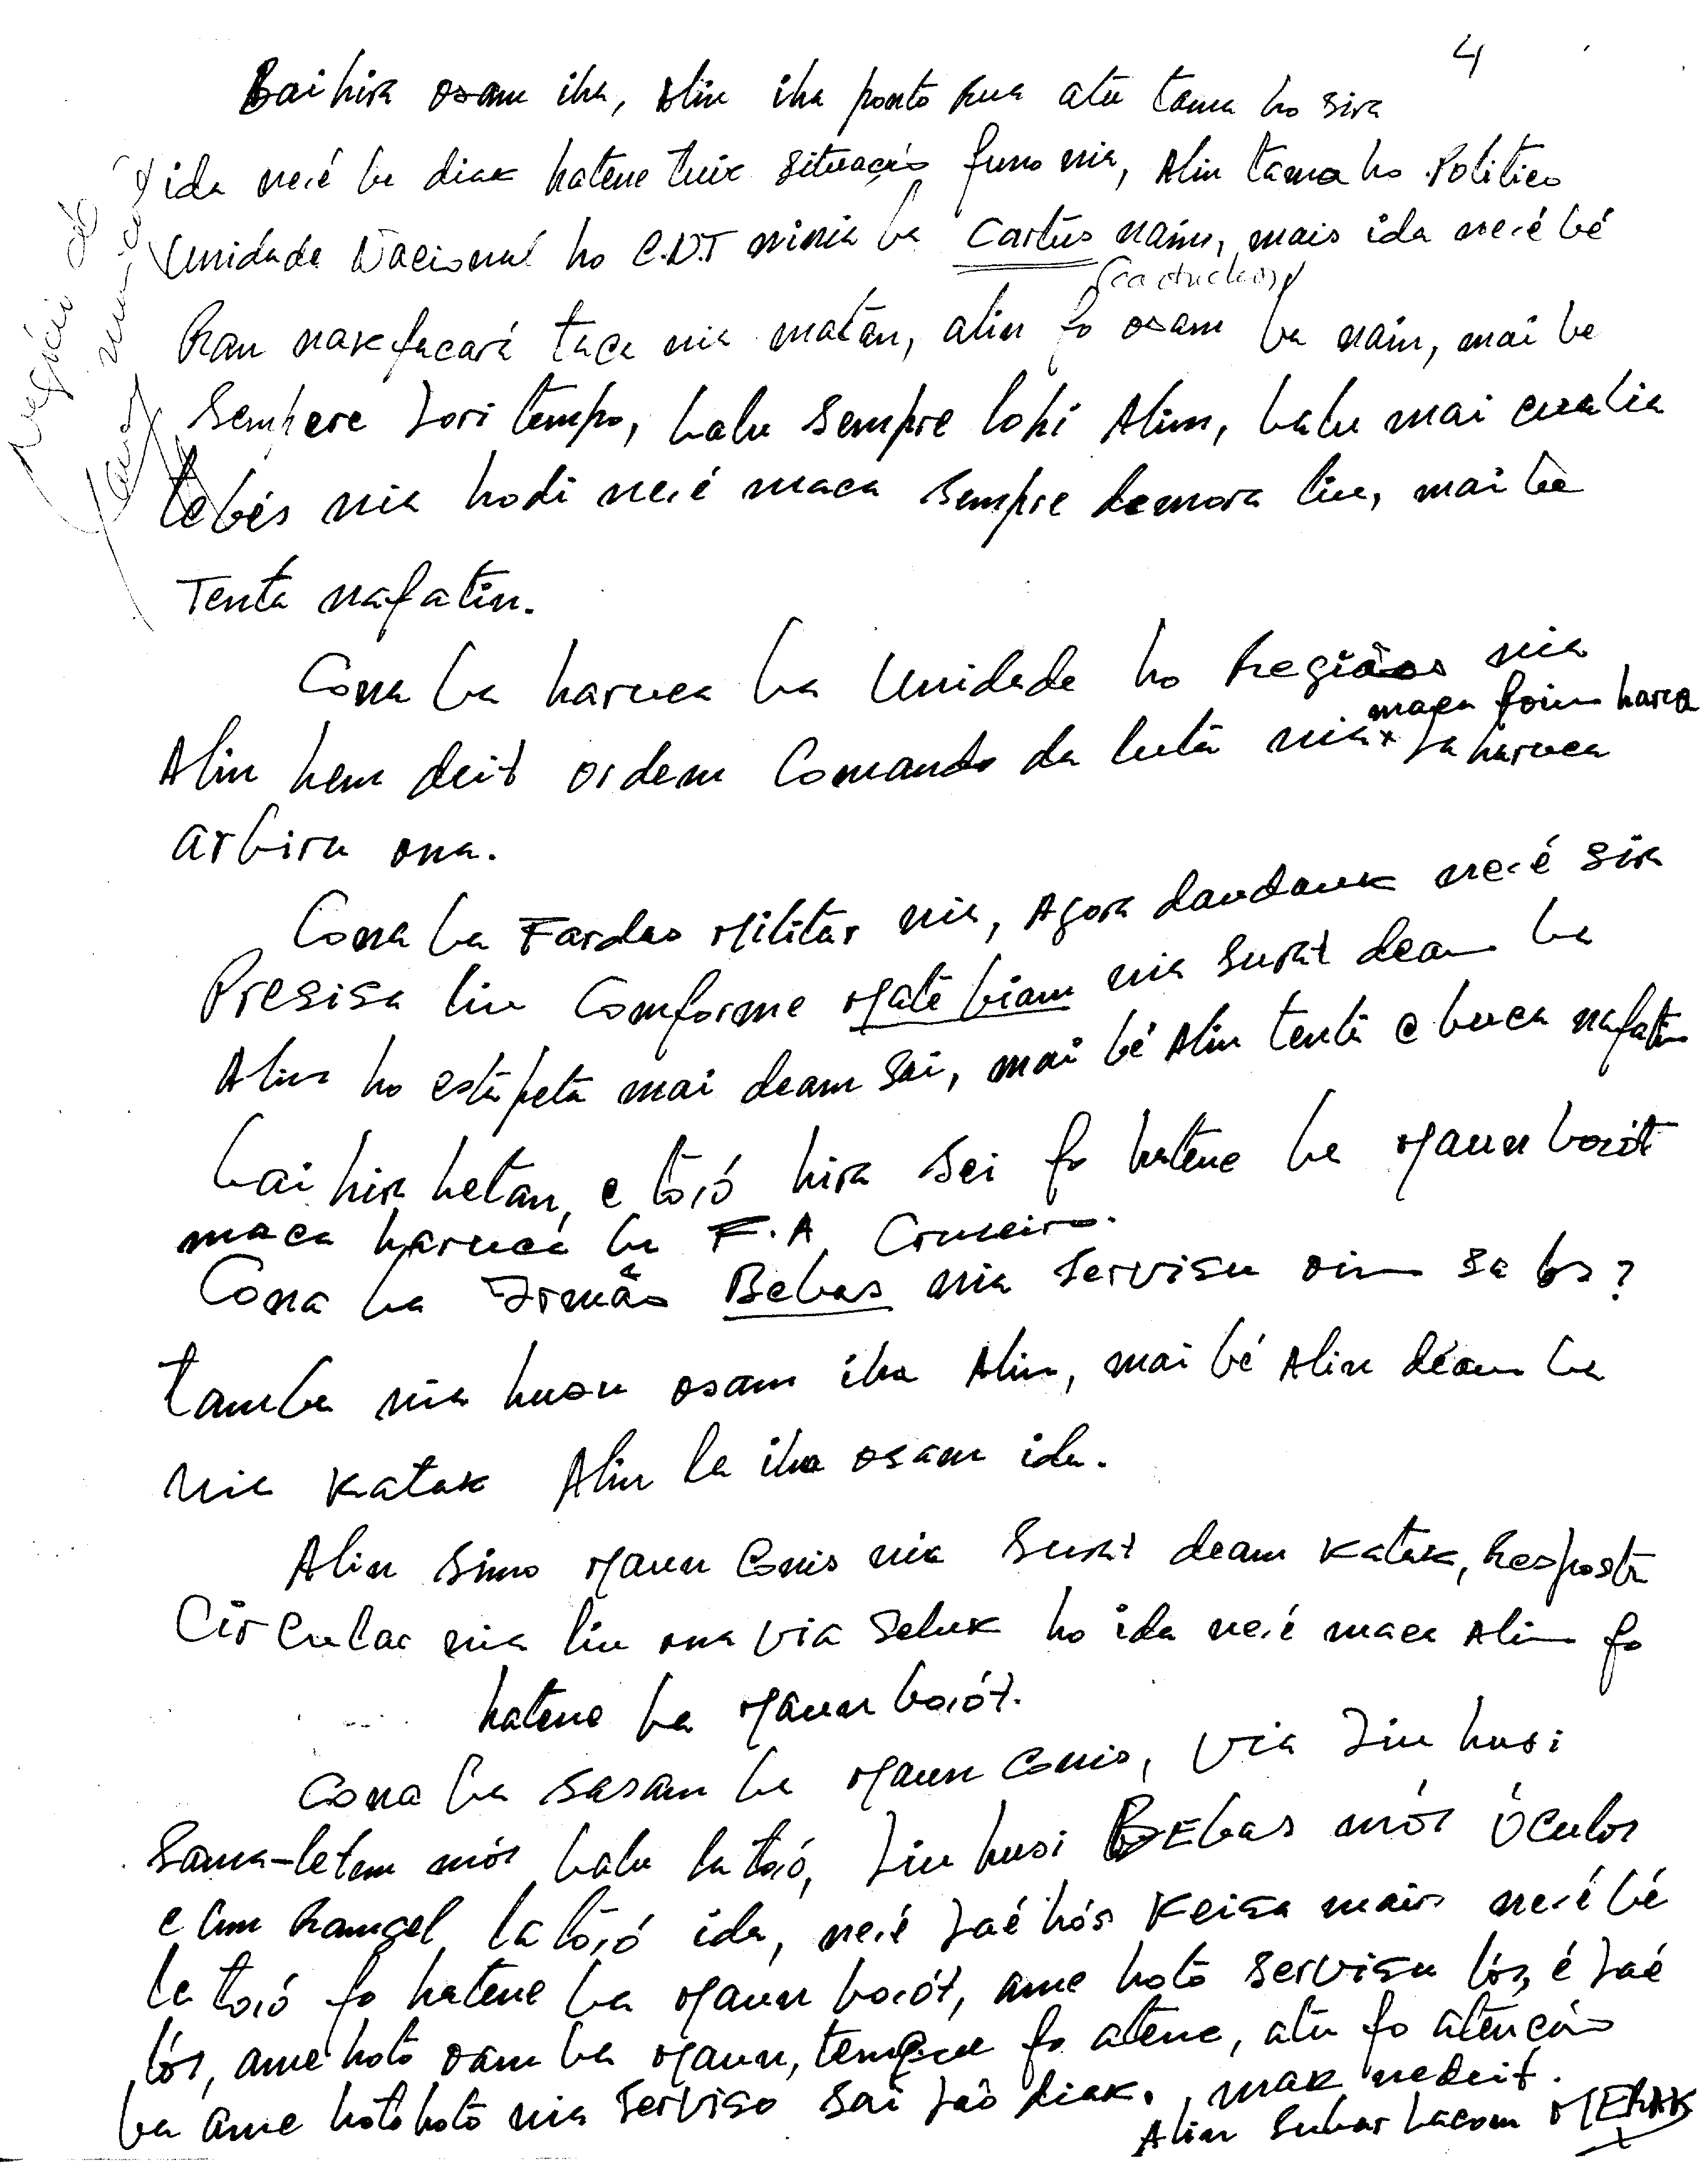 4
Baihira osam iha, Alin iha ponto rua atu tama ho sira
ida ne.é ba diak hatene tuir situação funo nia, Alin tama ho Politico
Unidade Nacional ho C.N.T ninia ba Cartus naim, mais ida ne.é bé
(cartuchos)
Ran nakfacará taça nia matan, alin fo osam ba naim, mai be
Sempere Lori tempo, balu sempre lohi Alin, balu mai cualia
tebés nia hodi ne.é maca sempre demora liu, mai bé
Tenta nafatin.
Cona ba haruca ba Unidade ho Regiãos nia
maca foin haruca
Alin hem deit ordem Comando da luta nia x La haruca
arbiru ona.
Cona ba Fardas Militar nia, Agora daudauk ne.é sira
Presisa liu Comforme Mate biam nia surat deam ba
Alin ho estafeta mai deam sai, mai bé Alin tenta e buca nafatin
bai hira hetan, e to.ó hira sei fo hatene ba Maun bo.ót
maca haruca ba F.A Cruzeiro.
Cona ba Irmão Bebas nia servisu oin sa los?
tamba nia husu osam iha Alin, mai bé Alin deam ba
nia katak Alin la iha osam ida.
Alin simo Maun Conis nia surat deam katak, Resposta
Circular nia liu ona via seluk ho ida ne.é maca Alin fo
hatene ba Maun bo.ót.
Cona ba sasam ba Maun Conis, via Liu husi
Sama-letem mós balu la to.ó, Liu husi BEbas mós Óculos
e Um la to.ó ida, ne.é Laé hós Keisa mais ne.é bé
la to.ó fo hatene ba Maun bo.ót, ame hoto servisu lós, é Laé
lós, ame hoto oam ba Maun, tem que fo atene, atu fo atenção
ba ame hotohoto nia serviso sai Laó diak., mak nedeit.
Alin Subar Lacom MERAK